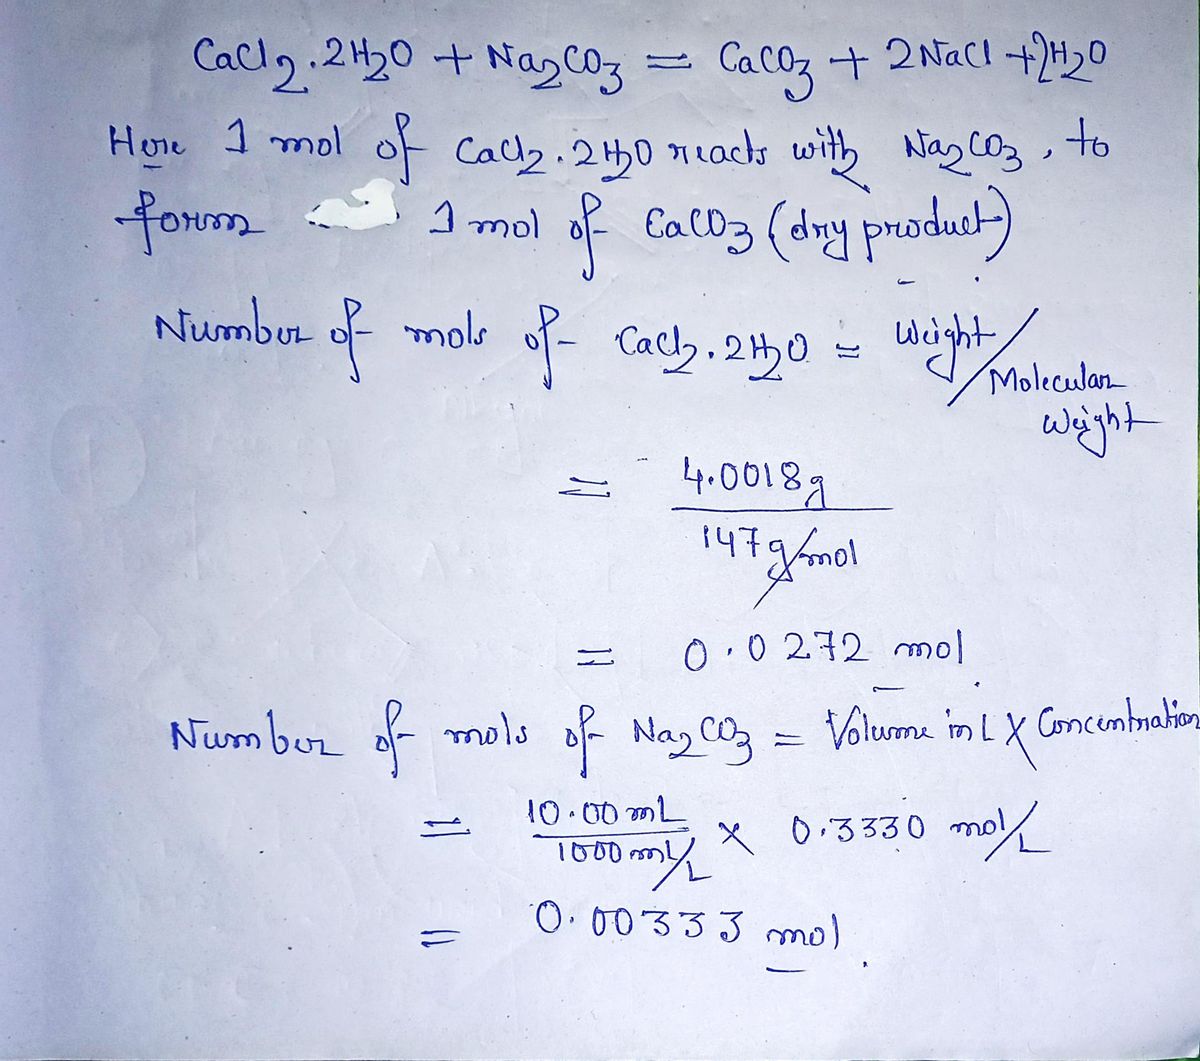 CaCl2.2H2O + Na2CO3 = CaCO3 + 2NaCl + 2H2O
Here 1 mol of CaCl2.2H2O reacts with Na2CO3, to
form 1 mol of CaCO3 (dry product)
Number of mols of CaCl2.2H2O = Weight/Molecular
Weight
= 4.0018g
147g/mol
= 0.0272 mol
Number of mols of Na2CO3 = Volume in L X Concentration
= 10.00 mL / 1000 mL/L x 0.3330 mol/L
= 0.00333 mol.